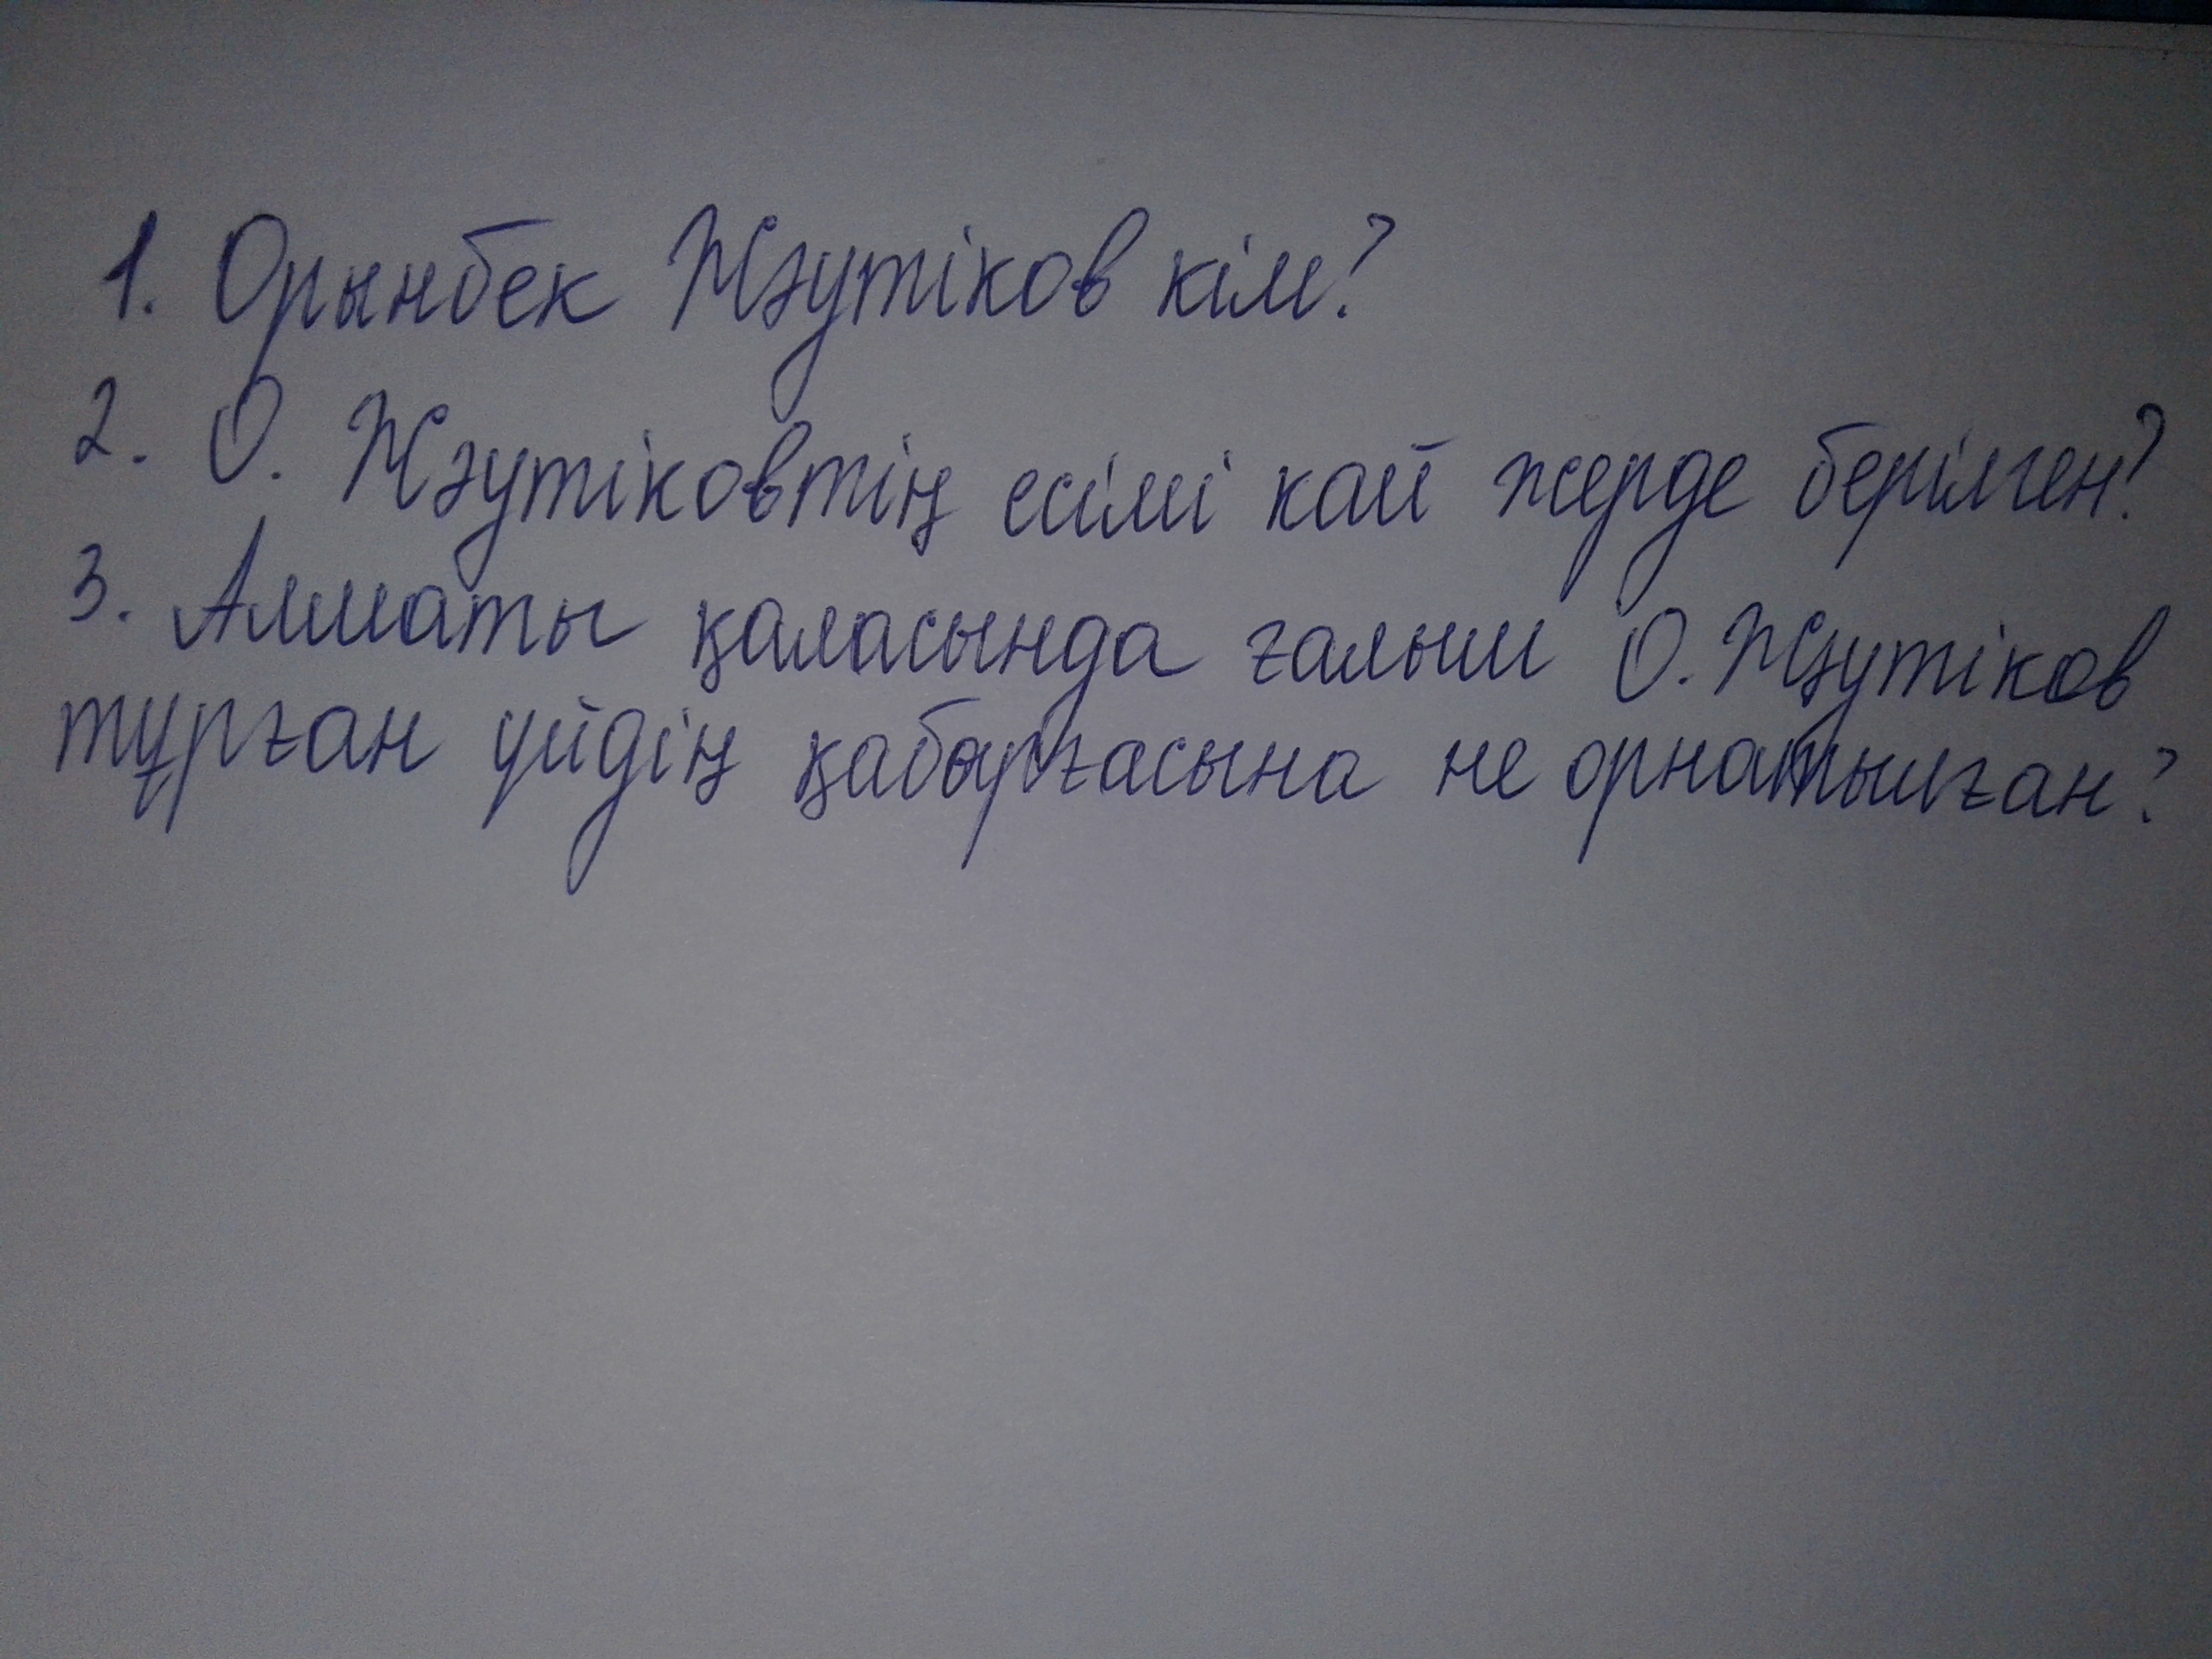 1. Орынбек Жәутіков кім?
2. О. Жәутіковтің есімі кай жерде берілген?
3. Алматы қаласында ғалым О. Жәутіков
тұрған үйдің қабырғасына не орнатылған?